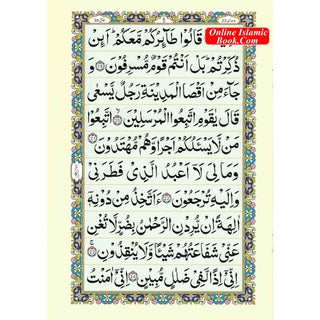 Online Islamic
Book.Com
قَالُوْا طَآئِرُكُمْ مَّعَكُمْ ؕ اَئِنْ
ذُكِّرْتُمْ ؕ بَلْ اَنْتُمْ قَوْمٌ مُّسْرِفُوْنَ ﴿۱۹﴾ وَ
جَآءَ مِنْ اَقْصَا الْمَدِيْنَةِ رَجُلٌ يَّسْعٰى
قَالَ يٰقَوْمِ اتَّبِعُوا الْمُرْسَلِيْنَ ﴿۲۰﴾ اتَّبِعُوْا
مَنْ لَّا يَسْئَلُكُمْ اَجْرًا وَّهُمْ مُّهْتَدُوْنَ ﴿۲۱﴾
وَمَا لِيَ لَاۤ اَعْبُدُ الَّذِيْ فَطَرَنِيْ
وَاِلَيْهِ تُرْجَعُوْنَ ﴿۲۲﴾ ءَاَتَّخِذُ مِنْ دُوْنِهٖۤ
اٰلِهَةً اِنْ يُّرِدْنِ الرَّحْمٰنُ بِضُرٍّ لَّا تُغْنِ
عَنِّيْ شَفَاعَتُهُمْ شَيْئًا وَّلَا يُنْقِذُوْنِ ﴿۲۳﴾
اِنِّيْۤ اِذًا لَّفِيْ ضَلٰلٍ مُّبِيْنٍ ﴿۲۴﴾ اِنِّيْۤ اٰمَنْتُ